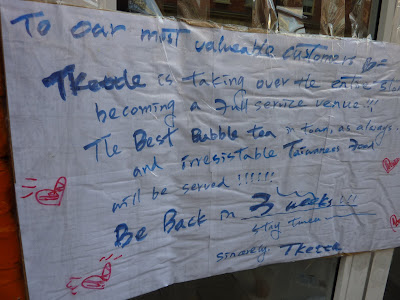 To our most valueable customers
TKettle is taking over the entire
becoming a full service venue!!!
The Best Bubble tea in town, as always.
and irresistable Taiwanese Food
will be served !!!!!!
Be Back in 3 weeks !!!
stay tune
sincerely. TKettle